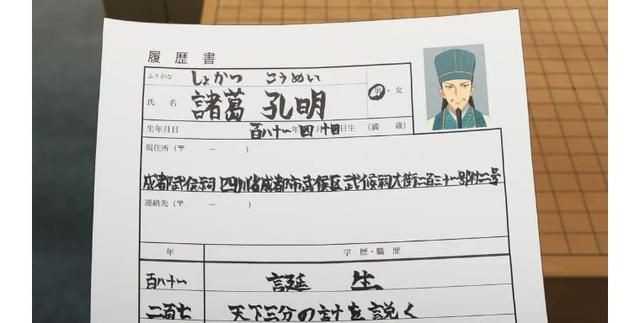 履歴書
ふりがな しょかつ こうめい
氏名 諸葛 孔明 男・女
生年月日 百八十一年四月十日生（満 歳）
現住所（〒 － ）
成都武侯祠 四川省成都市武侯区武侯祠大街二百三十一号附二号
連絡先（〒 － ）
年 学歴・職歴
百八十一 誕生
二百七 天下三分の計を説く